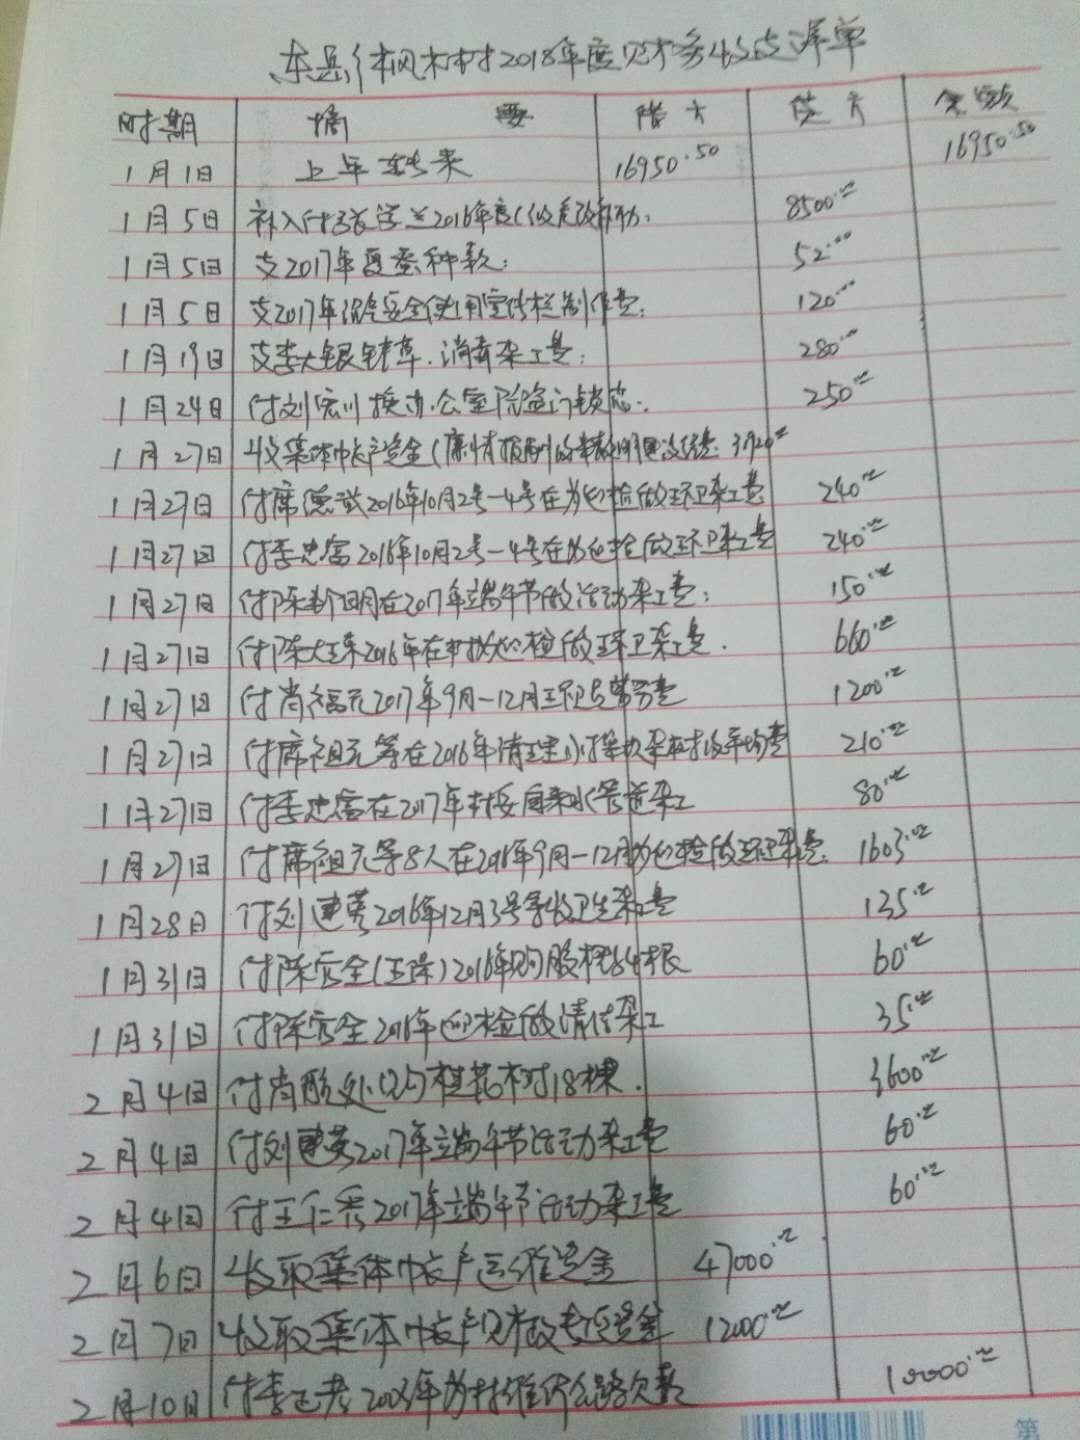 东岳镇枫木村2018年度财务收支清单
时期 摘要 借方 贷方 余额
1月1日 上年转来 16950.50 16950.50
1月5日 补入付 2016年度危改补助: 8500.00
1月5日 支2017年夏蚕种款: 52.00
1月5日 支2017年 安全使用宣传栏制作费: 120.00
1月19日 支李大银铲草.消毒杂工费: 280.00
1月24日 付刘 川换办公室防盗门锁芯. 250.00
1月27日 收集体帐户资金 3920.00
1月27日 付席德武2016年10月2号-4号在为迎检做环卫杂工费 240.00
1月27日 付李忠富2016年10月2号-4号在为迎检做环卫杂工费 240.00
1月27日 付陈新明在2017年端午节做活动杂工费: 150.00
1月27日 付陈大东2016年在村为迎检做环卫杂工费. 660.00
1月27日 付肖福元2017年9月-12月环卫 劳务费 1200.00
1月27日 付席祖元等在2016年清理 210.00
1月27日 付李忠富在2017年村安自来水管道杂工 80.00
1月27日 付席祖元等8人在2016年9月-12月为迎检做环卫杂费. 1603.00
1月28日 付刘建英2016年12月3号 卫生杂工费 135.00
1月31日 付陈官全 2016年购 根 60.00
1月31日 付陈官全2016年迎检做清洁杂工 35.00
2月4日 付肖 处购桂花树18棵. 3600.00
2月4日 付刘建英2017年端午节活动杂工费 60.00
2月4日 付王仁秀2017年端午节活动杂工费 60.00
2月6日 收取集体帐户运维资金 47000.00
2月7日 收取集体帐户财政专项资金 12000.00
2月10日 付李正君2003年为村维修公路欠款 10000.00
第